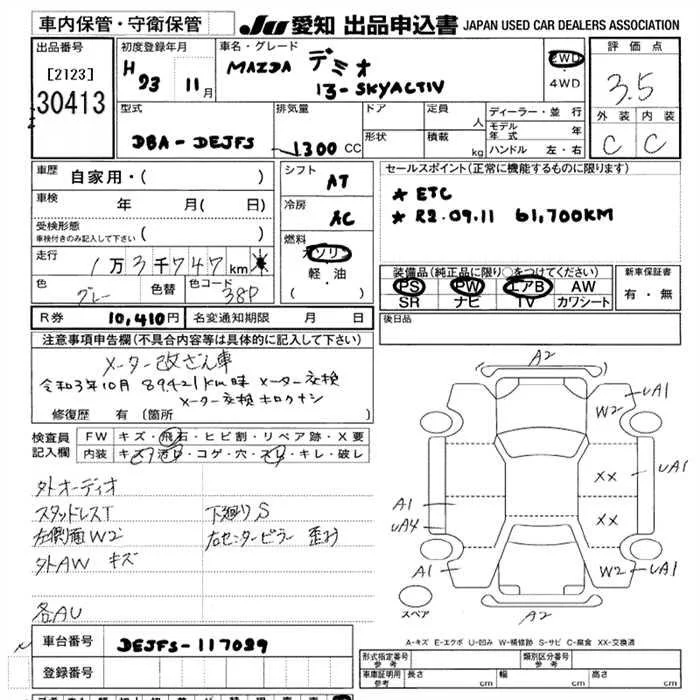 車内保管・守衛保管
JU 愛知 出品申込書 JAPAN USED CAR DEALERS ASSOCIATION
出品番号
[2123]
30413
初度登録年月
H 23 11月
車名・グレード
MAZDA デミオ
13-SKYACTIV
2WD
・
4WD
評価点
3.5
外装 内装
C C
型式
DBA-DEJFS
排気量
1300 CC
ドア
形状
定員 人
積載 kg
ディーラー・並行
モデル年式 年
ハンドル 左・右
車歴
自家用・( )
車検
年 月( 日)
受検形態
車検付きのみ記入して下さい
( )
走行
1万3千747km
色
グレー
色替
色コード
38P
シフト
AT
冷房
AC
燃料
ガソリン
軽・油
( )
セールスポイント(正常に機能するものに限ります)
* ETC
* R2.09.11 61,700KM
装備品(純正品に限り○をつけてください)
PS PW エアB AW
SR ナビ TV カワシート
新車保証書
有・無
R券 10,410円
名変通知期限 月 日
後日品
注意事項申告欄(不具合内容等は具体的に記入して下さい)
メーター改ざん車
令和3年10月 89,421km時 メーター交換
メーター交換キロクナシ
修復歴 有(箇所 )
検査員
記入欄
FW キズ・飛石・ヒビ割・リペア跡・X要
内装 キズ・汚レ・コゲ・穴・スレ・キレ・破レ
外オーディオ
スタッドレスT 下廻りS
左側面W2 右センターピラー 歪み
外AW キズ
各AU
A2
UA1
W2
XX
UA1
XX
A1
UA4
A1
W2
UA1
A2
スペア
A-キズ E-エクボ U-凹み W-補修跡 S-サビ C-腐食 XX-交換済
車台番号
DEJFS-117029
登録番号
型式指定番号
参考
類別区分番号
参考
車庫証明用
参考
長さ cm
幅 cm
高さ cm